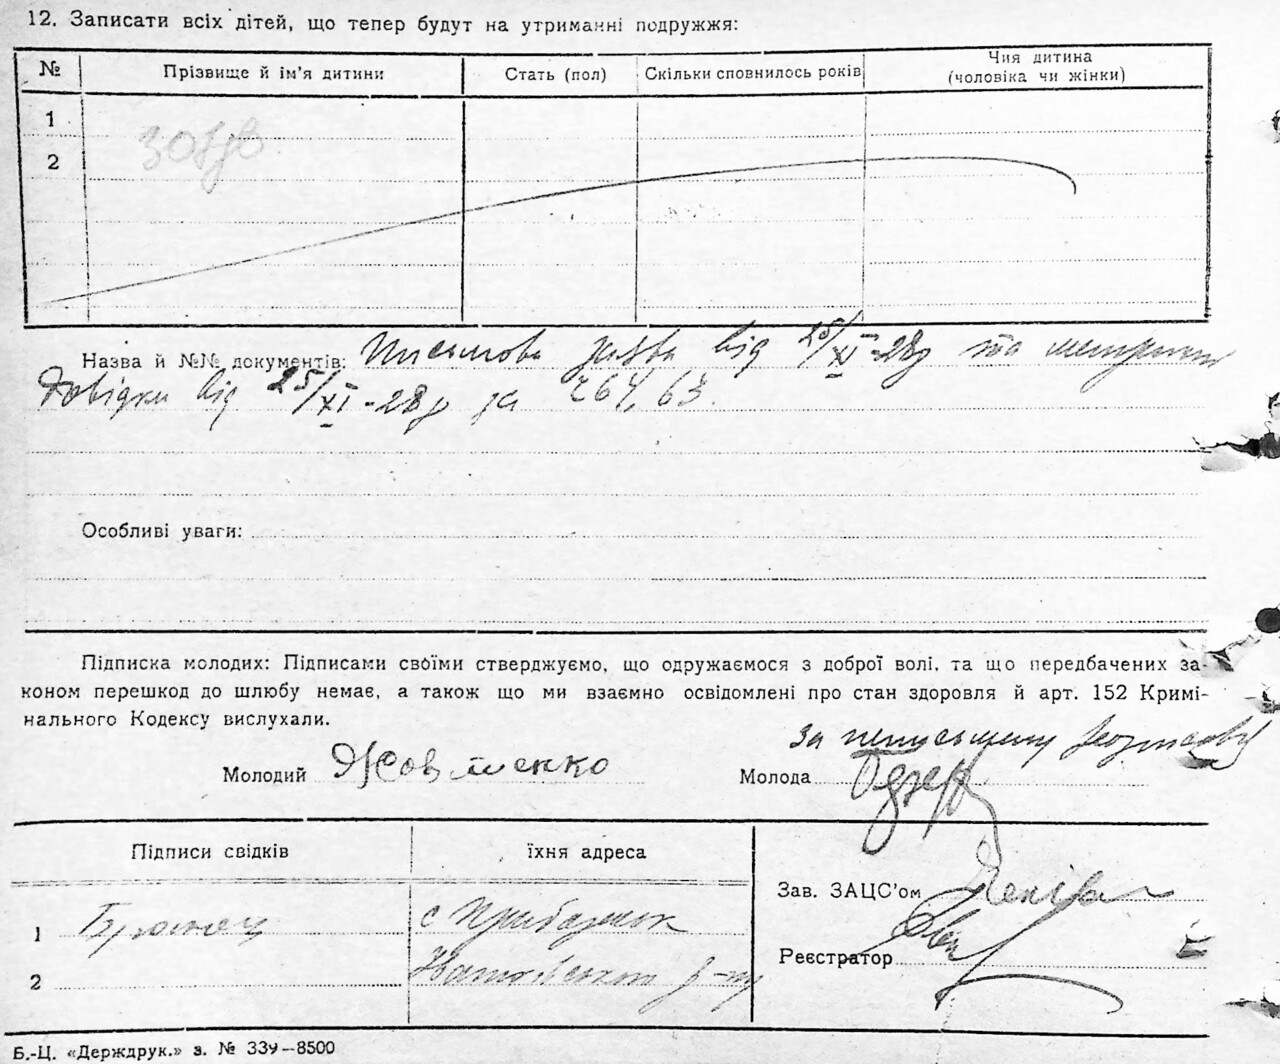 12. Записати всіх дітей, що тепер будут на утриманні подружжя:
№ Прізвище й ім'я дитини Стать (пол) Скільки сповнилось років Чия дитина (чоловіка чи жінки)
1
2
Назва й №№ документів: Письмова заява від 25/XI-28р та метричні
Довідки від 25/XI-28р за 264, 63.
Особливі уваги:
Підписка молодих: Підписами своїми стверджуємо, що одружаємося з доброї волі, та що передбачених за-
коном перешкод до шлюбу немає, а також що ми взаємно освідомлені про стан здоровля й арт. 152 Кримі-
нального Кодексу вислухали.
За неписьмену
Молодий Жовтенко Молода
Підписи свідків їхня адреса
Зав. ЗАЦС'ом
1 с
Реєстратор
2 р-ну
Б.-Ц. «Держдрук.» з. № 339—8500